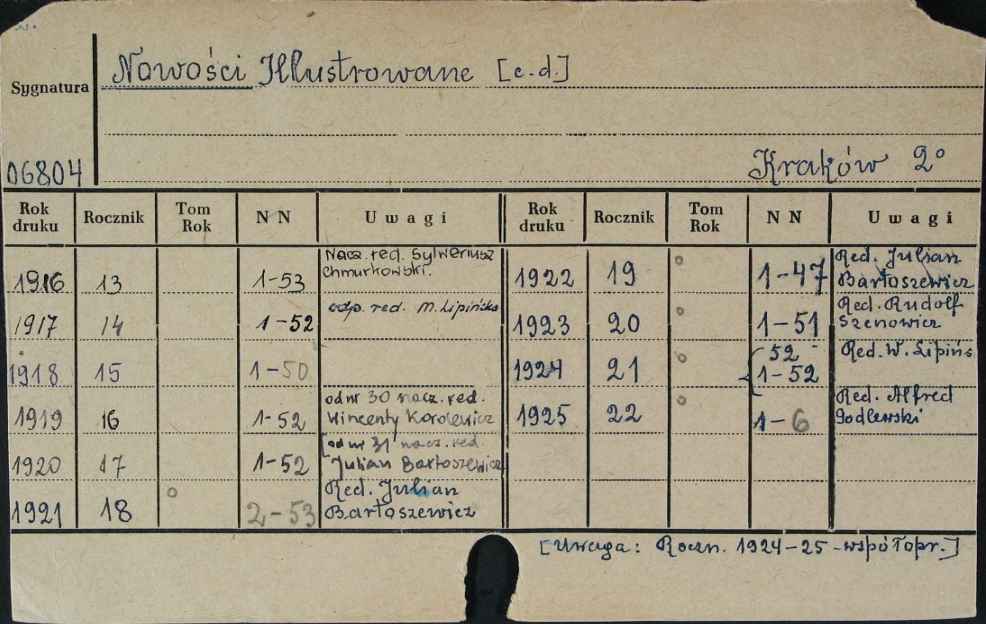 Nowości Illustrowane [c.d.]
Sygnatura
06804
Kraków 2°
Rok druku Rocznik Tom Rok N N Uwagi Rok druku Rocznik Tom Rok N N Uwagi
1916 13 1-53 Nacz. red. Sylweriusz Chmurkowski.
1917 14 1-52 odp. red. M. Lipińska
1918 15 1-50
1919 16 1-52 od nr 30 nacz. red. Wincenty Korolewicz
1920 17 1-52 [od nr 31 nacz. red. Julian Bartoszewicz
1921 18 ° 2-53 Red. Julian Bartoszewicz
1922 19 ° 1-47 Red. Julian Bartoszewicz
1923 20 ° 1-51 Red. Rudolf Szenowicz
1924 21 ° { 52 1-52 Red. W. Lipińs.
1925 22 ° 1-6 Red. Alfred Godlewski
[Uwaga: Roczn. 1924-25 -współopr.]